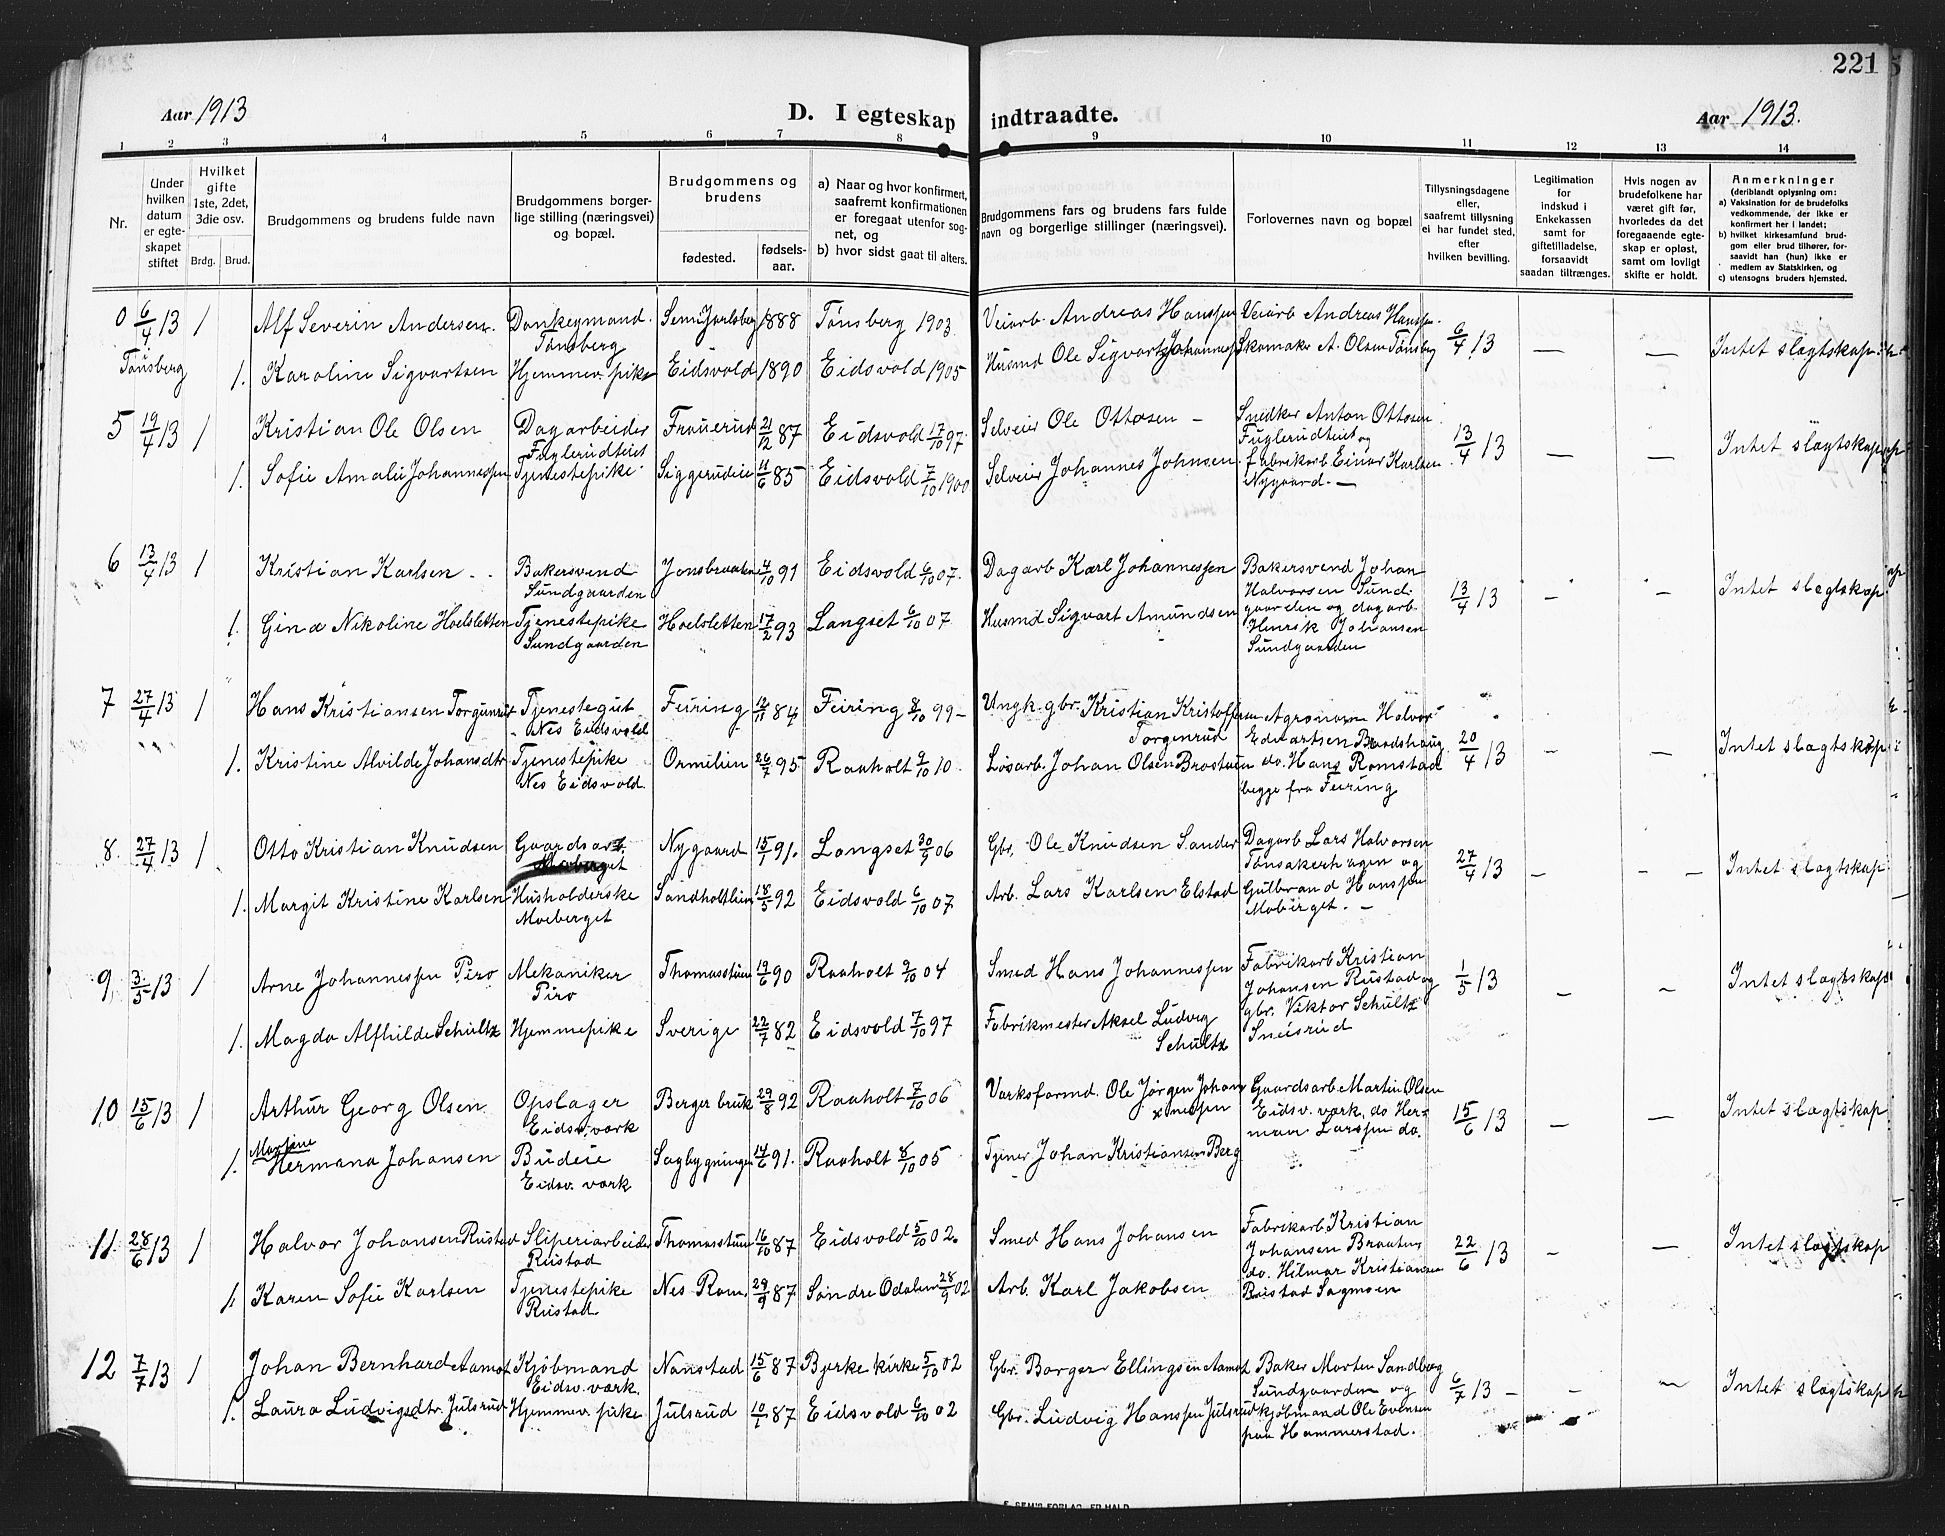 221
Aar 1913
D. I egteskap indtraadte.
Aar 1913.
1 2 3 4 5 6 7 8 9 10 11 12 13 14
Nr.
Under hvilken datum er egteskapet stiftet
Hvilket gifte 1ste, 2det, 3die osv.
Brdg. Brud.
Brudgommens og brudens fulde navn
Brudgommens borgerlige stilling (næringsvei) og bopæl.
Brudgommens og brudens
fødested.
fødselsaar.
a) Naar og hvor konfirmert, saafremt konfirmationen er foregaat utenfor sognet, og
b) hvor sidst gaat til alters.
Brudgommens fars og brudens fars fulde navn og borgerlige stillinger (næringsvei).
Forlovernes navn og bopæl
Tillysningsdagene eller, saafremt tillysning ei har fundet sted, efter hvilken bevilling.
Legitimation for indskud i Enkekassen samt for giftetilladelse, forsaavidt saadan tiltrænges.
Hvis nogen av brudefolkene har været gift før, hvorledes da det foregaaende egteskap er opløst, samt om lovligt skifte er holdt.
Anmerkninger
(deriblandt oplysning om:
a) Vaksination for de brudefolks vedkommende, der ikke er konfirmert her i landet;
b) hvilket kirkesamfund brudgom eller brud tilhører, forsaavidt han (hun) ikke er medlem av Statskirken, og
c) utensogns bruders hjemsted.
0 6/4 13 1 Alf Severin Andersen. Dankeymand. Tønsberg Sem Jarlsberg 1888 Tønsberg 1903 Veiarb. Andreas Hanssen Veiarb Andreas Hanssen. Skomaker A. Olsen Tønsberg 6/4 13 — — Intet slægtskap
Tønsberg 1. Karoline Sigvartsen Hjemmev. pike Eidsvold 1890 Eidsvold 1905 Husmd Ole Sigvart Johannes
5 19/4 13 1 Kristian Ole Olsen Dagarbeider Fuglerudteiet Frauerud 21/12 87 Eidsvold 17/10 97 Selveier Ole Ottosen — Snedker Anton Ottosen Fuglerudteiet og fabrikarb. Einar Karlsen Nygaard. — 13/4 13 — — Intet slægtskap
1. Sofie Amalie Johannessen Tjenestepike. Siggerudeie 11/6 85 Eidsvold 7/10 1900 Selveier Johannes Johnsen.
6 13/4 13 1 Kristian Karlsen Bakersvend Sundgaarden Jonsbraaten 4/10 91 Eidsvold 6/10 07. Dagarb Karl Johannessen Bakersvend Johan Halvorsen Sundgaarden og dagarb. Henrik Johansen Sundgaarden 13/4 13 — — Intet slægtskap
1. Gina Nikoline Hoelsletten Tjenestepike Sundgaarden Hoelsletten 17/2 93 Langset 6/10 07 Husmd Sigvart Amundsen
7 27/4 13 1 Hans Kristiansen Torgunrud Tjenestegut Nes Eidsvold Feiring 12/11 84 Feiring 8/10 99 — Ungk. gbr. Kristian Kristoffersen Torgenrud Agronom Halvor Edvartsen Brodshaug do. Hans Romstad begge fra Feiring 20/4 13 — — Intet slægtskap
1. Kristine Alvilde Johansdtr Tjenestepike Nes Eidsvold. Ormlien 26/7 95 Raaholt 9/10 10. Løsarb. Johan Olsen Brostuen
8. 27/4 13 1 Otto Kristian Knudsen Gaardsarb. Nygaard 15/1 91. Langset 30/9 06 Gbr. Ole Knudsen Sander Dagarb Lars Halvorsen Tønsakerhagen og Gulbrand Hanssen Mobirget. — 27/4 13 — — — Intet slægtskap
1. Margit Kristine Karlsen Husholderske Moeberget Sandholtlien 18/5 92 Eidsvold 6/10 07 Arb. Lars Karlsen Elstad
9. 3/5 13 1 Arne Johannessen Piro Mekaniker Piro Thomasstuen 19/6 90 Raaholt 9/10 04 Smed Hans Johannessen Fabrikarb Kristian Johansen Rustad og gbr. Viktor Schultz Sneisrud 1/5 13 — — Intet slægtskap
1. Magda Alfhilde Schultz Hjemmepike Sverige 22/7 82 Eidsvold 7/10 97 Fabrikmester Aksel Ludvig Schultz
10 15/6 13 1 Arthur Georg Olsen Opslager Eidsv. værk Berger bruk 29/8 92 Raaholt 7/10 06 Værksformd. Ole Jørgen Johannessen Gaardsarb Martin Olsen Eidsv. værk, do Herman Larssen do. 15/6 13 — — Intet slægtskap
1. Martine Hermana Johansen Budeie Eidsv. værk Sagbygningen 14/6 91. Raaholt 8/10 05 Tjener Johan Kristiansen Berg
11. 28/6 13 1 Halvor Johansen Rustad Sliperiarbeider Rustad Thomasstuen 16/10 87 Eidsvold 5/10 02. Smed Hans Johansen Fabrikarb Kristian Johansen Braaten, do. Hilmar Kristiansen Rustad Sagmoen 22/6 13 — — Intet slægtskap
1. Karen Sofie Karlsen Tjenestepike Rustad. Nes Rom. 29/9 87 Søndre Odalen 28/9 02 Arb. Karl Jakobsen
12 7/7 13 1 Johan Bernhard Aamot Kjøbmand Eidsv. værk. Nanstad 15/6 87 Bjerke kirke 5/10 02 Gbr. Borger Ellingsen Aamot Baker Morten Sandberg Sundgaarden og kjøbmand Ole Evensen paa Hammerstad. 6/7 13 — — — Intet slægtskap
1. Laura Ludvigsdtr. Julsrud Hjemmev. pike Julsrud 10/1 87 Eidsvold 6/10 02 Gbr. Ludvig Hanssen Julsrud